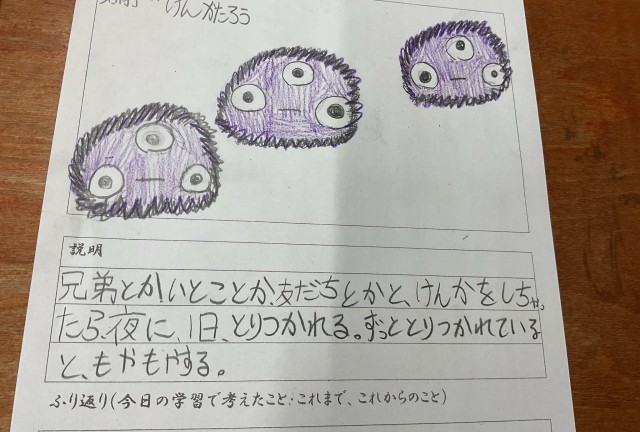 けんかたろう
説明
兄弟とかいとことか、友だちとかと、けんかをしちゃっ
たら、夜に、1日、とりつかれる。ずっととりつかれている
と、もやもやする。
ふり返り(今日の学習で考えたこと:これまで、これからのこと)